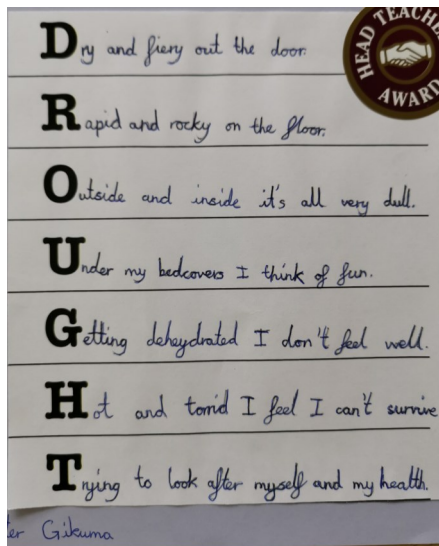 Dry and fiery out the door.
HEAD TEACHER
AWARD
Rapid and rocky on the floor.
Outside and inside it's all very dull.
Under my bedcovers I think of fun.
Getting deheydrated I don't feel well.
Hot and torrid I feel I can't survive
Trying to look after myself and my health.
Gikuma